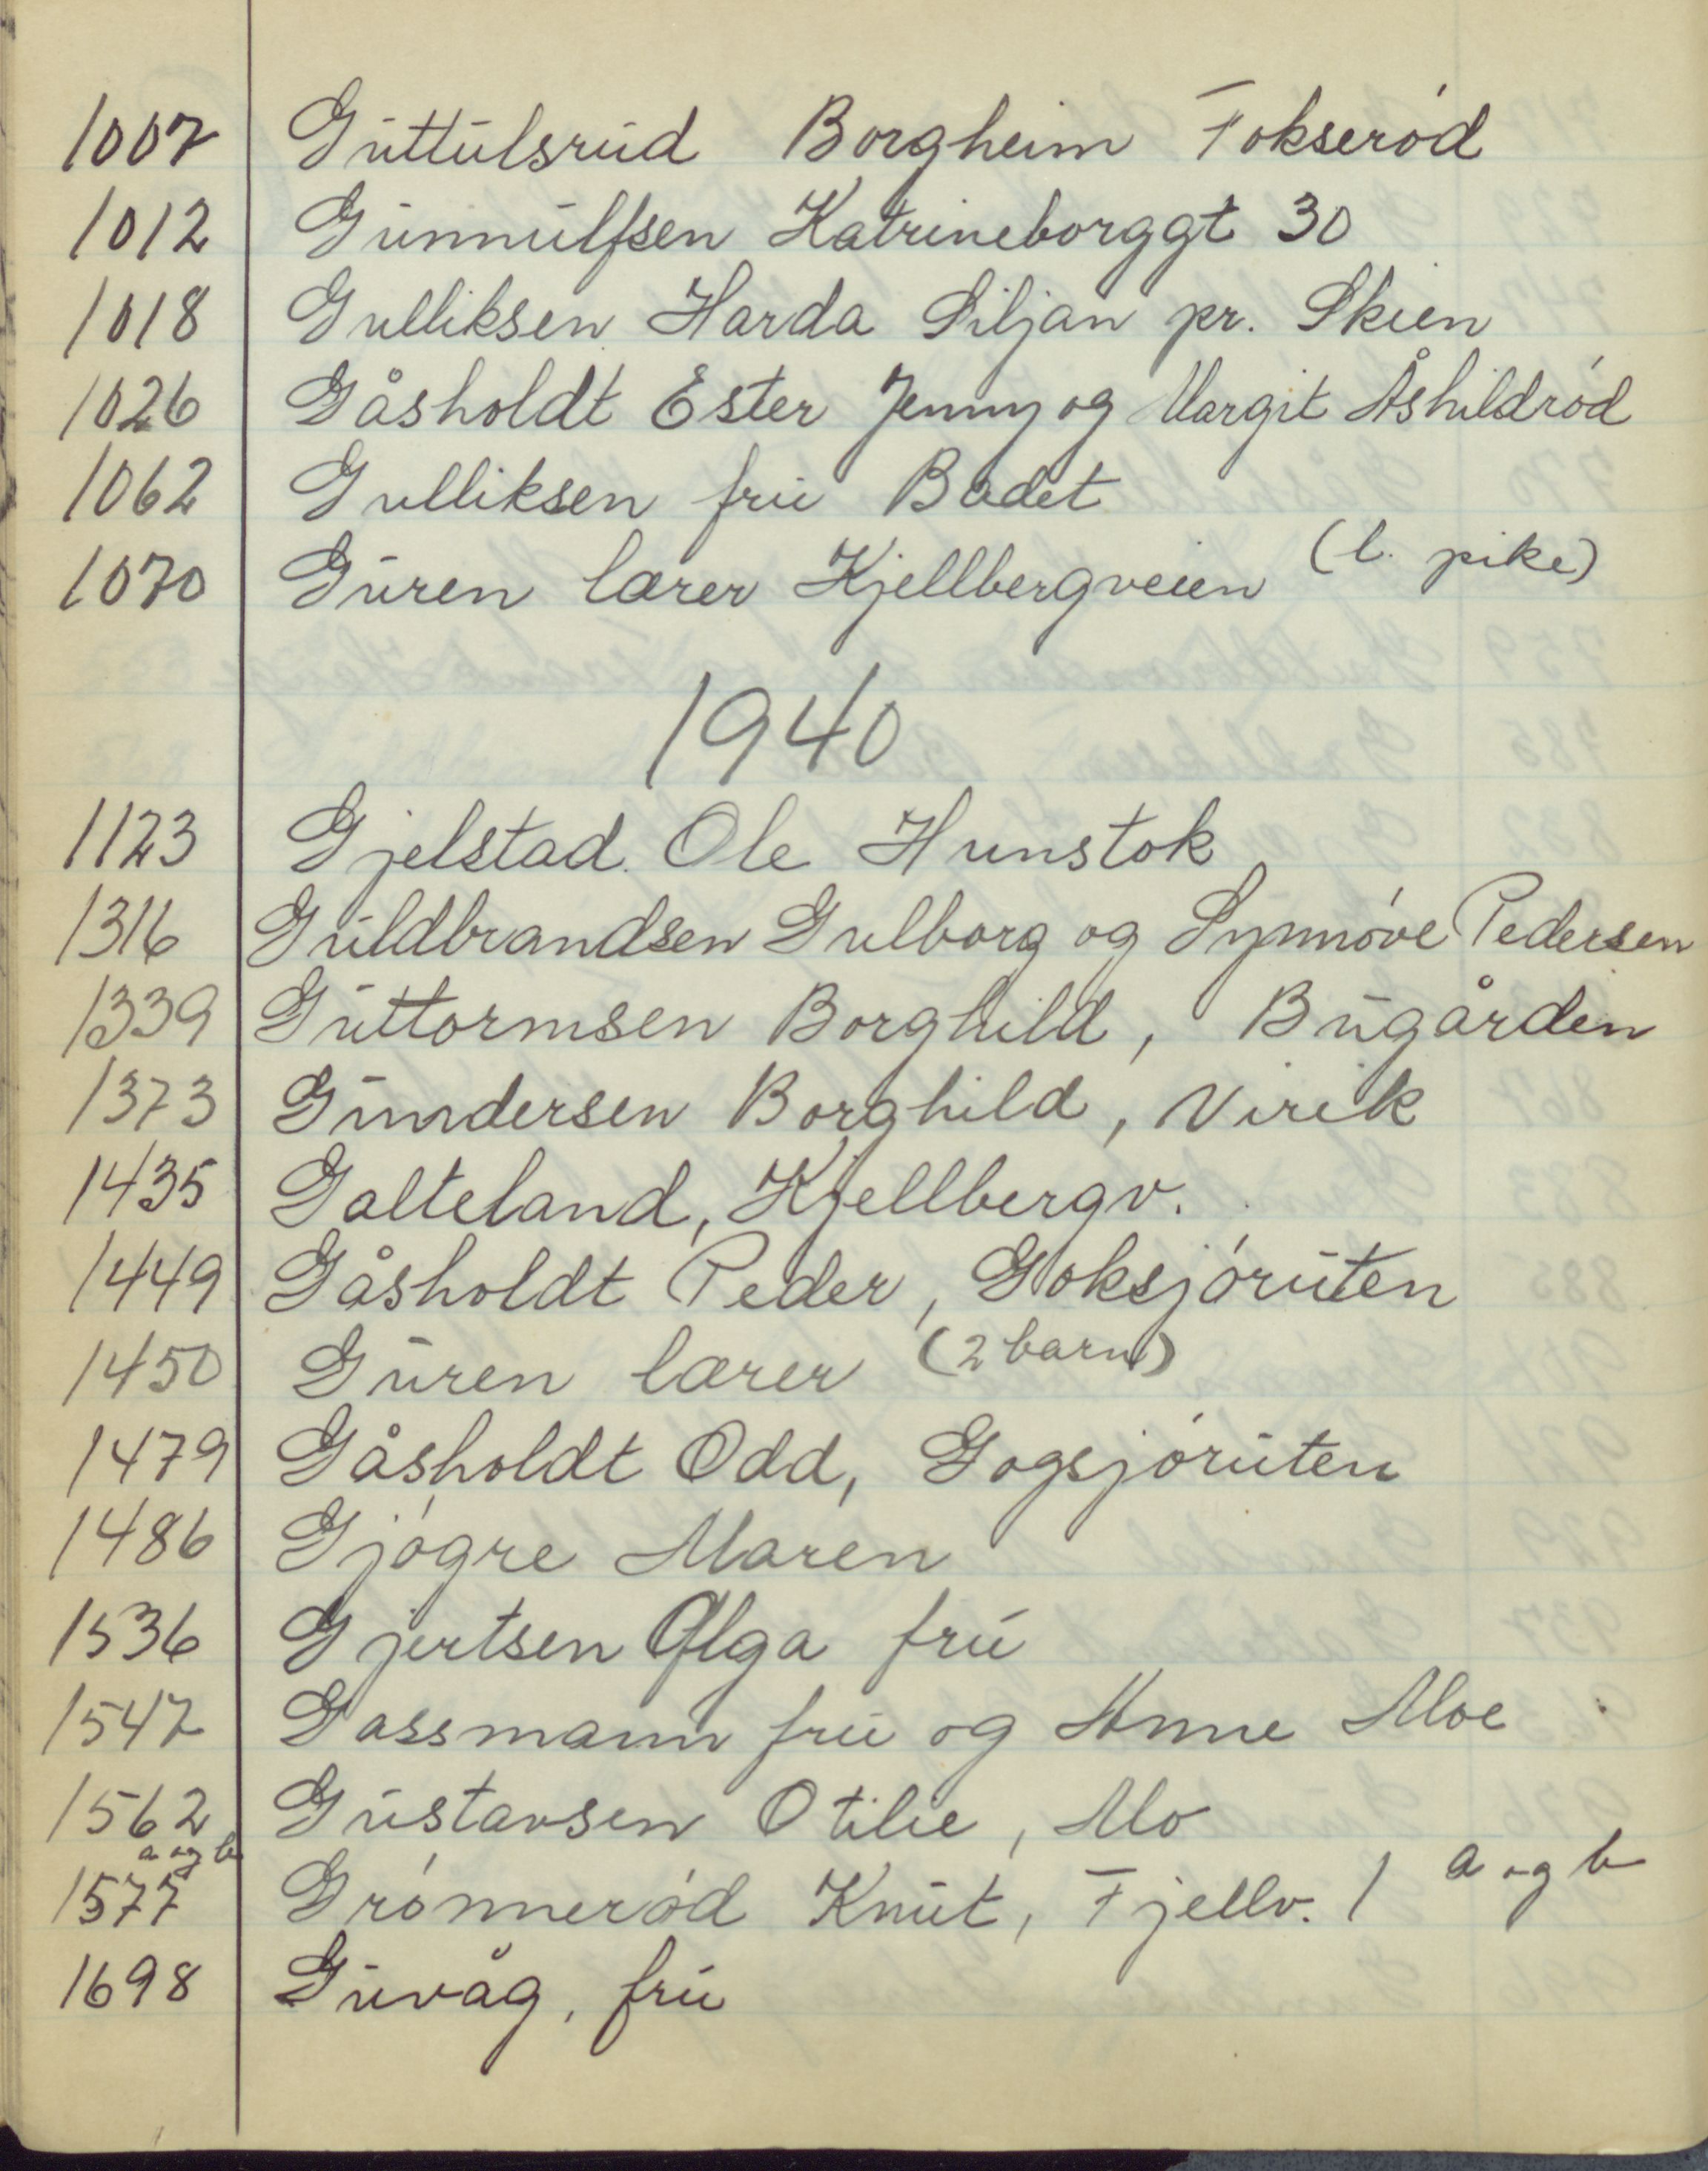 1007 Guttulsrud Borgheim Fokserød
1012 Gunnulfsen Katrineborggt 30
1018 Gulliksen Harda Siljan pr. Skien
1026 Gåsholdt Ester Jenny og Margit Åshildrød
1062 Gulliksen fru Badet
1070 Guren lærer Kjellbergveien (l. pike)
1940
1123 Gjelstad. Ole Hunstok
1316 Guldbrandsen Gulborg og Synnøve Pedersen
1339 Guttormsen Borghild, Bugården
1373 Gundersen Borghild, Virik
1435 Galteland, Kjellbergv.
1449 Gåsholdt Peder, Goksjøruten
1450 Guren lærer (2 barn)
1479 Gåsholdt Odd, Gogsjøruten
1486 Gjøgre Maren
1536 Gjertsen Olga fru
1547 Gassmann fru og Anne Moe
1562 Gustavsen Otilie, Mo
1577 a og b Grønnerød Knut, Fjellv. 1 a og b
1698 Guvåg, fru